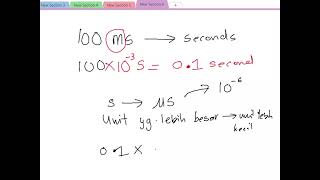 New Section 3
New Section 4
New Section 5
New Section 6
100 ms → seconds
100×10⁻³ s = 0.1 second
s → μs → 10⁻⁶
Unit yg. lebih besar → unit lebih kecil
0.1 ×